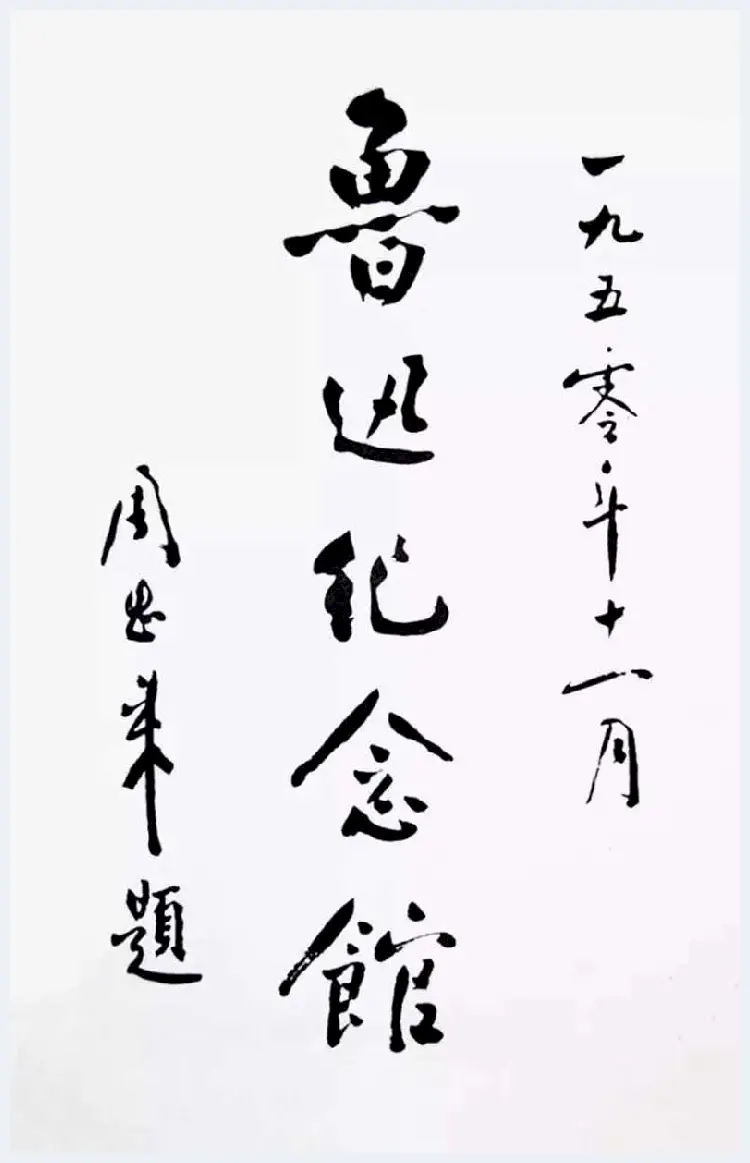 一九五零年十一月
魯迅纪念館
周恩来题